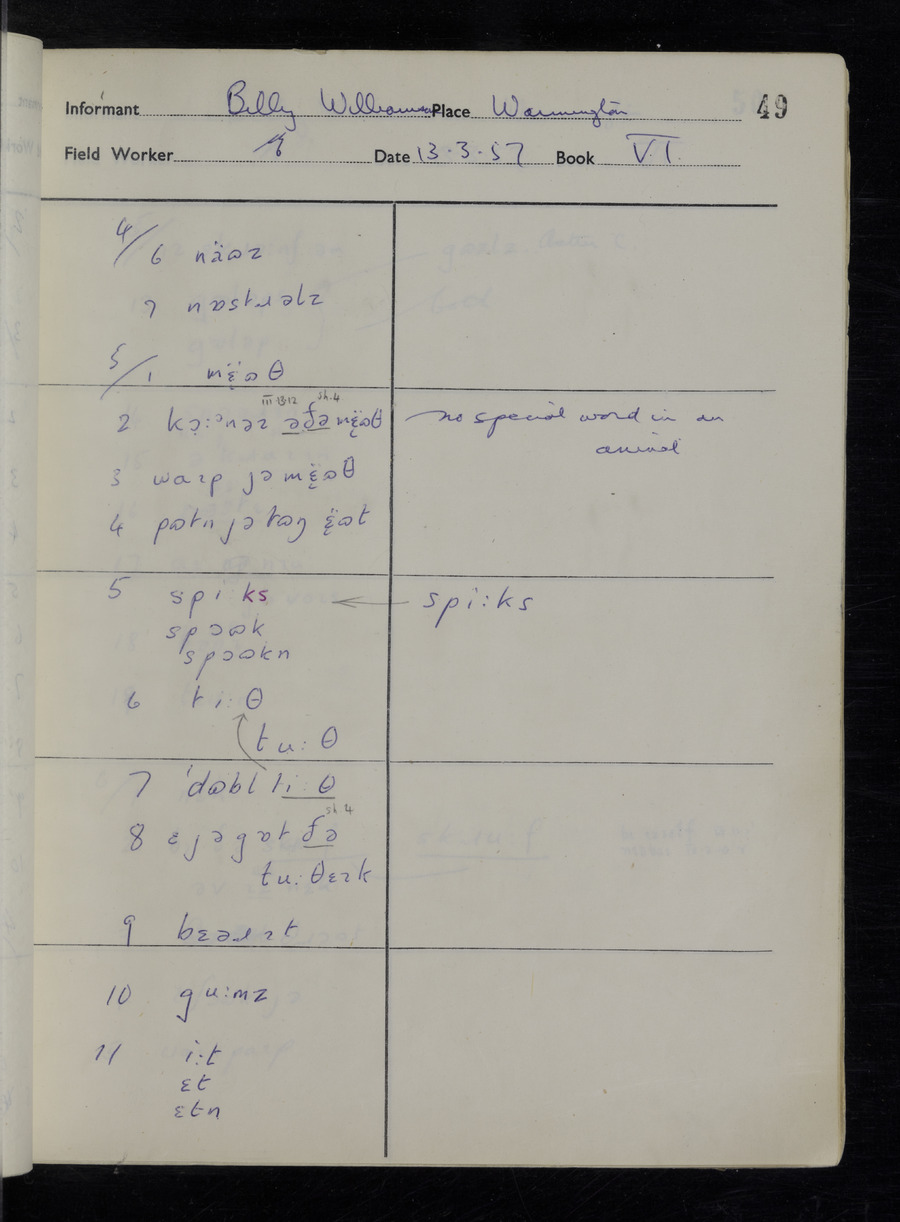 Informant Billy Williamson Place Warmington 49
Field Worker Date 13.3.57 Book VI.
4/6 näɷz
7 nɒstɹəlz
5/1 mɛ̣̈ɷθ
III·13·12 sh.4
2 kɔ̣:ᵊnəz əðə mɛ̣̈ɷθ no special word in an
animal
3 waɪp jə mɛ̣̈ɷθ
4 pɷtn jə tɷŋ ɛ̣̈ɷt
5 spiks ← spi:ks
spɔɷk
spɔɷkn
6 ti:θ
tu:θ
7 ˈdɷbl ti:θ
sh 4
8 ɛjəgɒt ðə
tu:θɛɪk
9 bɛəɹɪt
10 gu:mz
11 i:t
ɛt
ɛtn